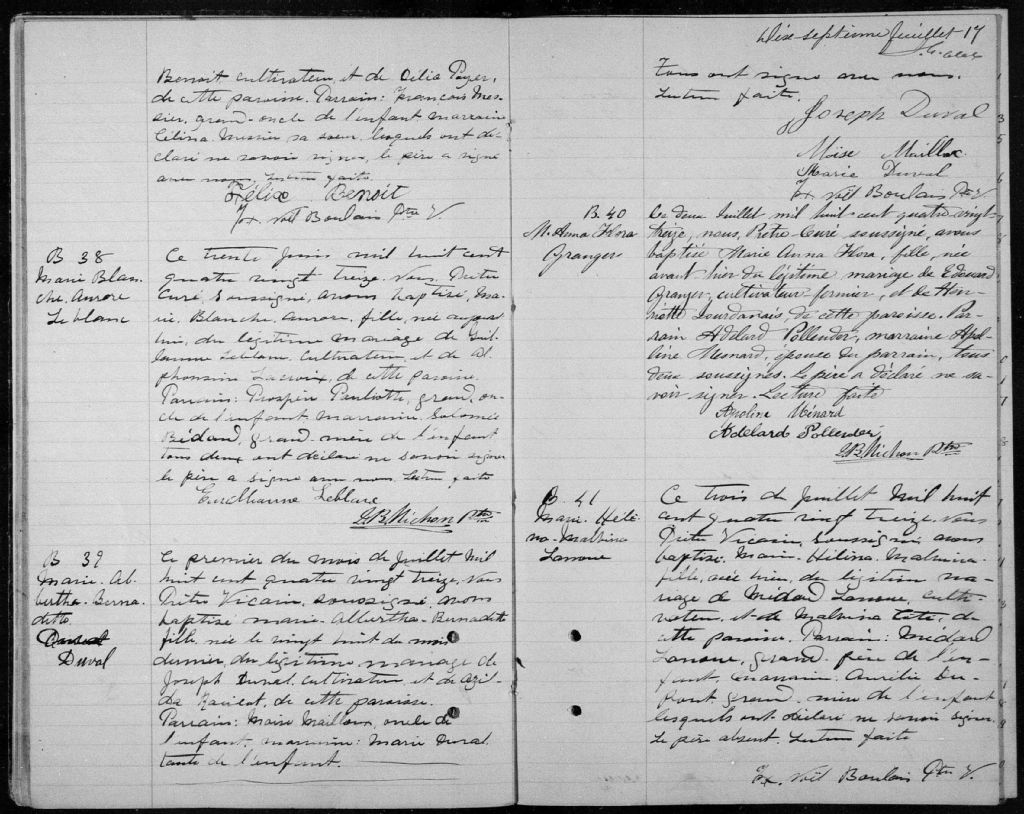 Benoit cultivateur, et de Delia Payer,
de cette paroisse. Parrain: François Mes-
sier, grand-oncle de l'enfant marraine
Célina Messier sa soeur lesquels ont dé-
claré ne savoir signer, le père a signé
avec nous, Lecture faite.
Félix Benoit
Fx Noël Boulais Ptre V.
B 38
Marie Blan-
che Aurore
Leblanc
Ce trente Juin mil huit cent
quatre vingt treize. Nous Prêtre
Curé, Soussigné, avons baptisé, Ma-
rie. Blanche Aurore, fille, née aujour
hui, du légitime mariage de Guil-
laume Leblanc cultivateur, et de Al-
phonsine Lacroix, de cette paroisse.
Parrain: Prospère Pauliotte, grand, on-
cle de l'enfant Marraine Salomée
Bédard, grand-mère de l'enfant
tous deux ont déclaré ne savoir signer
le père a signé avec nous Lecture faite
Guillaume Leblanc
J.B. Michon Ptre
B 39
Marie. Al-
bertha. Berna-
dette.
Duval
Ce premier du mois de Juillet Mil
huit cent quatre vingt treize, Nous
Prêtre Vicaire, soussigné, avons
baptisé Marie-Albertha-Bernadette
fille, née le vingt huit du mois
dernier, du légitime mariage de
Joseph Duval cultivateur et de
de cette paroisse.
Parrain: Moise Mailloux, oncle de
l'enfant, marraine: Marie Duval
tante de l'enfant.
Dixe septieme feuillet 17
Tous ont signé avec nous.
Lecture faite.
Joseph Duval
Moise Maillox
Marie Duval
Fx Noël Boulais Ptre V
B. 40
M. Anna Flora
Granger
Ce deux Juillet mil huit-cent quatre vingt
treize, nous, Prêtre Curé soussigné, avons
baptisé Marie Anna Flora, fille, née
avant hier du légitime mariage de Edouard
Granger, cultivateur-fermier, et de Hen-
riette Jourdanais de cette paroisse. Par-
rain Adélard Pollender, marraine Apol-
line Mesnard, épouse du parrain, tous
deux soussignés. Le père a déclaré ne sa-
voir signer. Lecture faite
Apoline Ménard
Adélard Pollender
J.B. Michon Ptre
B. 41
Marie. Hélé-
na-Malvina
Lanoue
Ce trois de Juillet Mil huit
cent quatre vingt treize. Nous
Prêtre Vicaire, Soussigné avons
baptisé. Marie. Hélina. Malvina.
fille, née hier, du légitime ma-
riage de Médard Lanoue, culti-
vateur, et de Malvina Tetro, de
cette paroisse. Parrain: Médard
Lanoue, grand-père de l'en-
fant, Marraine: Aurélie Du-
pont grand-mère de l'enfant
lesquels ont déclaré ne savoir signer
Le père absent. Lecture faite
Fx. Noël Boulais Ptre V.